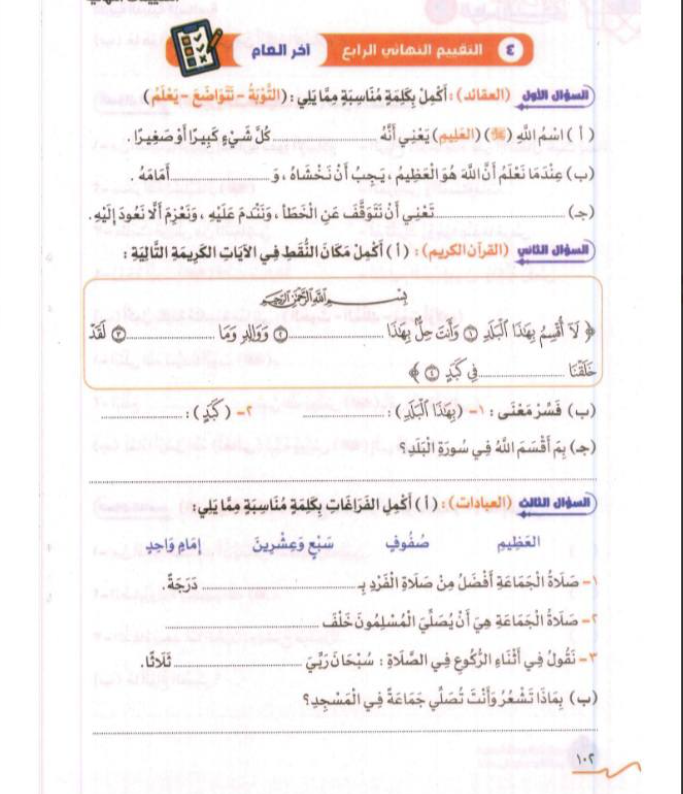 ٤ التقييم النهائي الرابع آخر العام
السؤال الأول (العقائد): أَكْمِلْ بِكَلِمَةٍ مُنَاسِبَةٍ مِمَّا يَلِي: (التَّوْبَةُ – نَتَوَاضَعَ – يَعْلَمُ)
(أ) اسْمُ اللَّهِ (ﷻ) (العَلِيمِ) يَعْنِي أَنَّهُ ............ كُلَّ شَيْءٍ كَبِيرًا أَوْ صَغِيرًا.
(ب) عِنْدَمَا نَعْلَمُ أَنَّ اللَّهَ هُوَ الْعَظِيمُ، يَجِبُ أَنْ نَخْشَاهُ، وَ ............ أَمَامَهُ.
(جـ) ............ تَعْنِي أَنْ نَتَوَقَّفَ عَنِ الْخَطَأِ، وَنَنْدَمَ عَلَيْهِ، وَنَعْزِمَ أَلَّا نَعُودَ إِلَيْهِ.
السؤال الثاني (القرآن الكريم): (أ) أَكْمِلْ مَكَانَ النُّقَطِ فِي الآيَاتِ الكَرِيمَةِ التَّالِيَةِ:
بِسْمِ اللَّهِ الرَّحْمَٰنِ الرَّحِيمِ
﴿ لَآ أُقْسِمُ بِهَٰذَا الْبَلَدِ ① وَأَنتَ حِلٌّ بِهَٰذَا ............ ② وَوَالِدٍ وَمَا ............ ③ لَقَدْ
خَلَقْنَا ............ فِي كَبَدٍ ④ ﴾
(ب) فَسِّرْ مَعْنَى: ١- (بِهَٰذَا الْبَلَدِ): ............ ٢- (كَبَدٍ): ............
(جـ) بِمَ أَقْسَمَ اللَّهُ فِي سُورَةِ الْبَلَدِ؟
............
السؤال الثالث (العبادات): (أ) أَكْمِلِ الفَرَاغَاتِ بِكَلِمَةٍ مُنَاسِبَةٍ مِمَّا يَلِي:
العَظِيمِ صُفُوفٍ سَبْعٍ وَعِشْرِينَ إِمَامٍ وَاحِدٍ
١- صَلَاةُ الْجَمَاعَةِ أَفْضَلُ مِنْ صَلَاةِ الْفَرْدِ بِـ ............ دَرَجَةً.
٢- صَلَاةُ الْجَمَاعَةِ هِيَ أَنْ يُصَلِّيَ الْمُسْلِمُونَ خَلْفَ ............
٣- نَقُولُ فِي أَثْنَاءِ الرُّكُوعِ فِي الصَّلَاةِ: سُبْحَانَ رَبِّيَ ............ ثَلَاثًا.
(ب) بِمَاذَا تَشْعُرُ وَأَنْتَ تُصَلِّي جَمَاعَةً فِي الْمَسْجِدِ؟
............
١٠٢